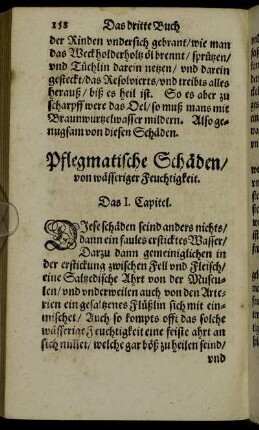 158 Das dritte Buch
der Rinden undersich gebrant/wie man
das Weckholderholtzöl brennt/sprützen/
und Tüchlin darein netzen/ und darein
gesteckt/das Resolvierts/und treibts alles
herauß/ biß es heil ist. So es aber zu
scharpff were das Oel/so muß mans mit
Braunwurtzelwasser mildern. Also ge-
nugsam von diesen Schäden.
Pflegmatische Schäden/
von wässeriger Feuchtigkeit.
Das I. Capitel.
DIese schäden seind anders nichts/
dann ein faules ersticktes Wasser/
Darzu dann gemeiniglichen in
der erstickung zwischen Fell und Fleisch/
eine Saltzedische Ahrt von der Muscu-
len/und underweilen auch von den Arte-
rien ein gesaltzenes Flüßlin sich mit ein-
mischet/ Auch so kompts offt das solche
wässerige Feuchtigkeit eine feiste ahrt an
sich nimet/ welche gar böß zu heilen seind/
und